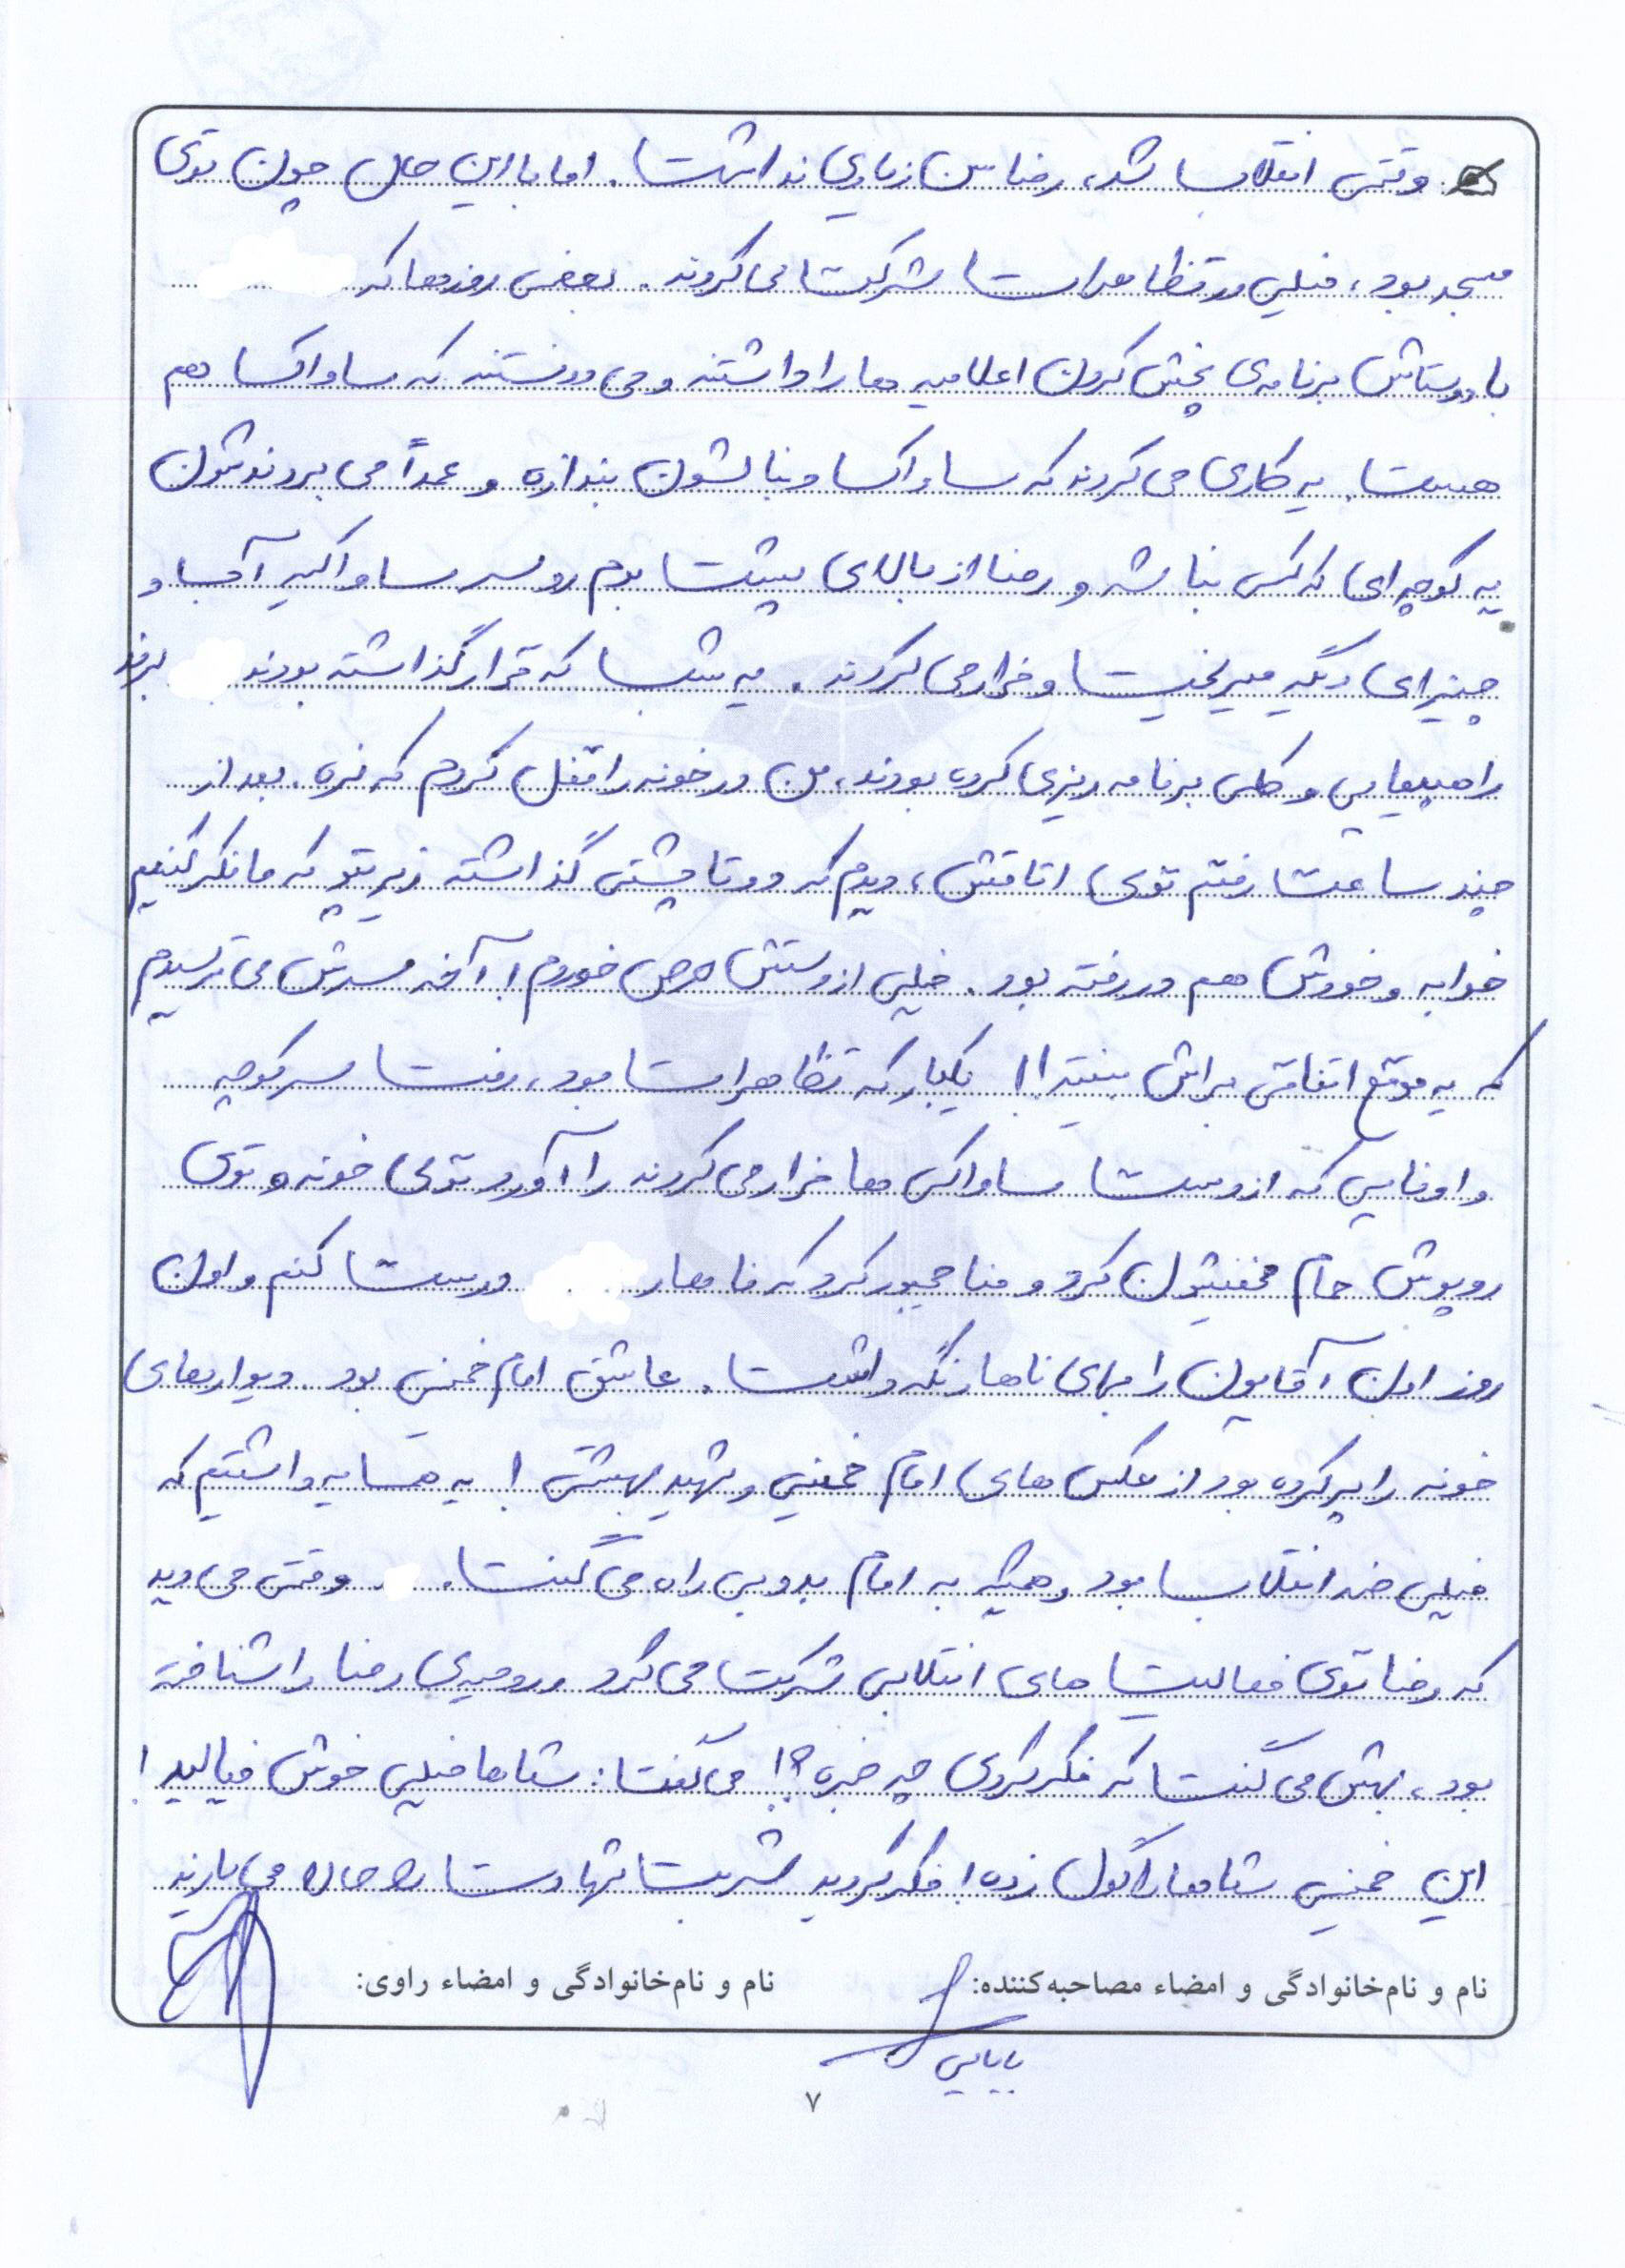 وقتی انقلاب شد، رضا سن زیادی نداشت. اما با این حال چون توی
مسجد بود، خیلی در تظاهرات شرکت می کردند. بعضی روزها که
با دوستاش برنامه ی پخش کردن اعلامیه ها را داشتند و می دونستند که ساواک هم
هست. یه کاری می کردند که ساواک دنبالشون بندازه و عمداً می بردندشون
یه کوچه ای که کسی نباشه و رضا از بالای پشت بوم رو سر ساواکیه آب و
چیزای دیگه میریخت و فرار می کردند. یه شب که قرار گذاشته بودند برند
راهپیمایی و کلی برنامه ریزی کرده بودند، من در خونه را قفل کردم که نره. بعد از
چند ساعت رفتم توی اتاقش، دیدم که دو تا پشتی گذاشته زیر پتو که ما فکر کنیم
خوابه و خودش هم در رفته بود. خیلی از دستش حرص خوردم! آخه همش می ترسیدم
که یه موقع اتفاقی براش بیفتد!! یکبار که تظاهرات بود، رفت سر کوچه
و اونایی که از دست ساواکی ها فرار می کردند را آورد توی خونه و توی
روپوش حمام مخفیشون کرد و منا مجبور کرد که ناهار درست کنم و اون
روز اون آقایون را برای ناهار نگه داشت. عاشق امام خمینی بود. دیوارهای
خونه را پر کرده بود از عکس های امام خمینی و شهید بهشتی! یه همسایه داشتیم که
خیلی ضد انقلاب بود و همیشه به امام بد و بی راه می گفت. وقتی می دید
که رضا توی فعالیت های انقلابی شرکت می کرد و روحیه ی رضا را شناخته
بود، بهش می گفت که فکر کردی چه خبره؟! می گفت: شماها خیلی خوش خیالید!
این خمینی شماها را گول زده! فکر کردید شربت شهادت راه حاله می یارند
نام و نام‌خانوادگی و امضاء مصاحبه‌کننده: نام و نام‌خانوادگی و امضاء راوی:
بابایی
۷